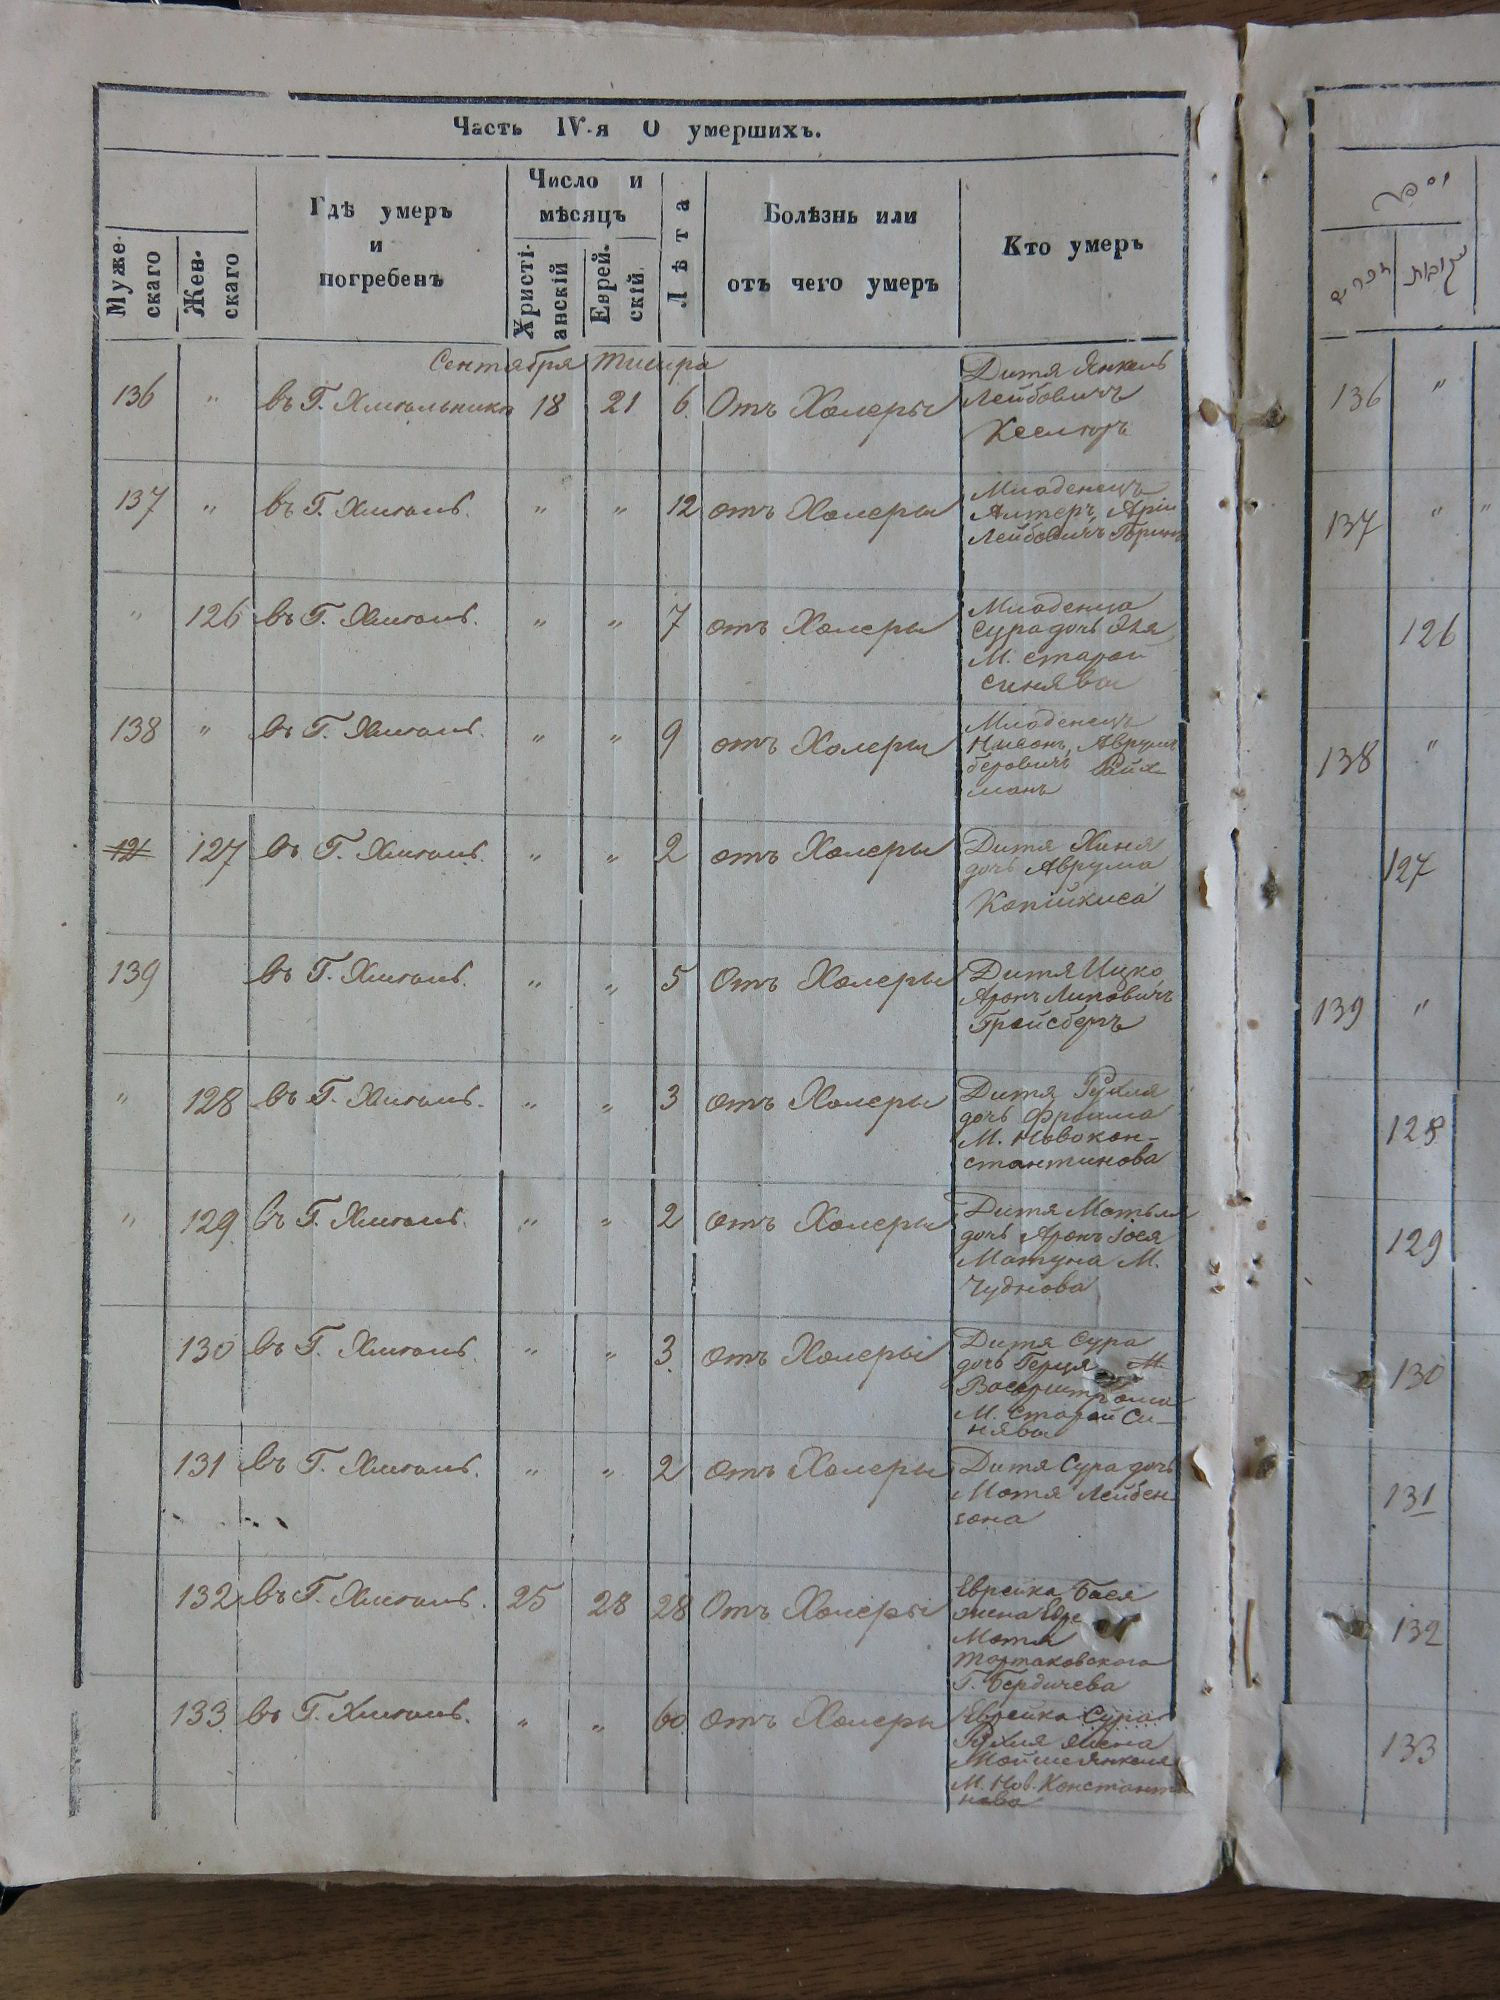 Часть IV-я О умершихъ.
Муже-
скаго
Жен-
скаго
Гдѣ умеръ
и
погребенъ
Число и
мѣсяцъ
Христі-
анскій
Еврей-
скій
Лѣта
Болѣзнь или
отъ чего умеръ
Кто умеръ
Сентября Тишра
136 " въ Г. Хмѣльникѣ 18 21 6 Отъ Холеры
Дитя Янкель
Лейбовичъ
137 " въ Г. Хмѣль. " " 12 отъ Холеры
Младенецъ
Алтеръ Арій
Лейбовичъ
" 126 въ Г. Хмѣль. " " 7 отъ Холеры
Младенца
Сура дочь
М. Старой
Синявы
138 " въ Г. Хмѣль. " " 9 отъ Холеры
Младенецъ
Нисонъ Аврумъ
беровичъ Райх-
манъ
121 127 въ Г. Хмѣль. " " 2 отъ Холеры
Дитя Хиня
дочь Аврума
Копійкиса
139 въ Г. Хмѣль. " " 5 Отъ Холеры
Дитя Ицко
Аронъ Липовичъ
Гройсбергъ
" 128 въ Г. Хмѣль. " " 3 отъ Холеры
Дитя Рухля
дочь Фроима
М. Новокон-
стантинова
" 129 въ Г. Хмѣль. " " 2 отъ Холеры
Дитя Мотьля
дочь Аронъ Іося
Мотуна М.
Чуднова
130 въ Г. Хмѣль. " " 3 отъ Холеры
Дитя Сура
дочь Герця М.
Васерштрома
М. Старой Си-
нявы
131 въ Г. Хмѣль. " " 2 отъ Холеры
Дитя Сура дочь
Мотя Лейбен-
зона
132 въ Г. Хмѣль. 25 28 28 Отъ Холеры
Еврейка Бася
жена Евре
Мотя
Тортаковского
Г. Бердичева
133 въ Г. Хмѣль. " " 60 отъ Холеры
Еврейка Сура
Рухля жена
Мойше Янкеля
М. Нов. Константи
нова
מספר
זכרים
נקבות
136 "
137 " "
126
138 "
127
139 "
128
129
130
131
132
133